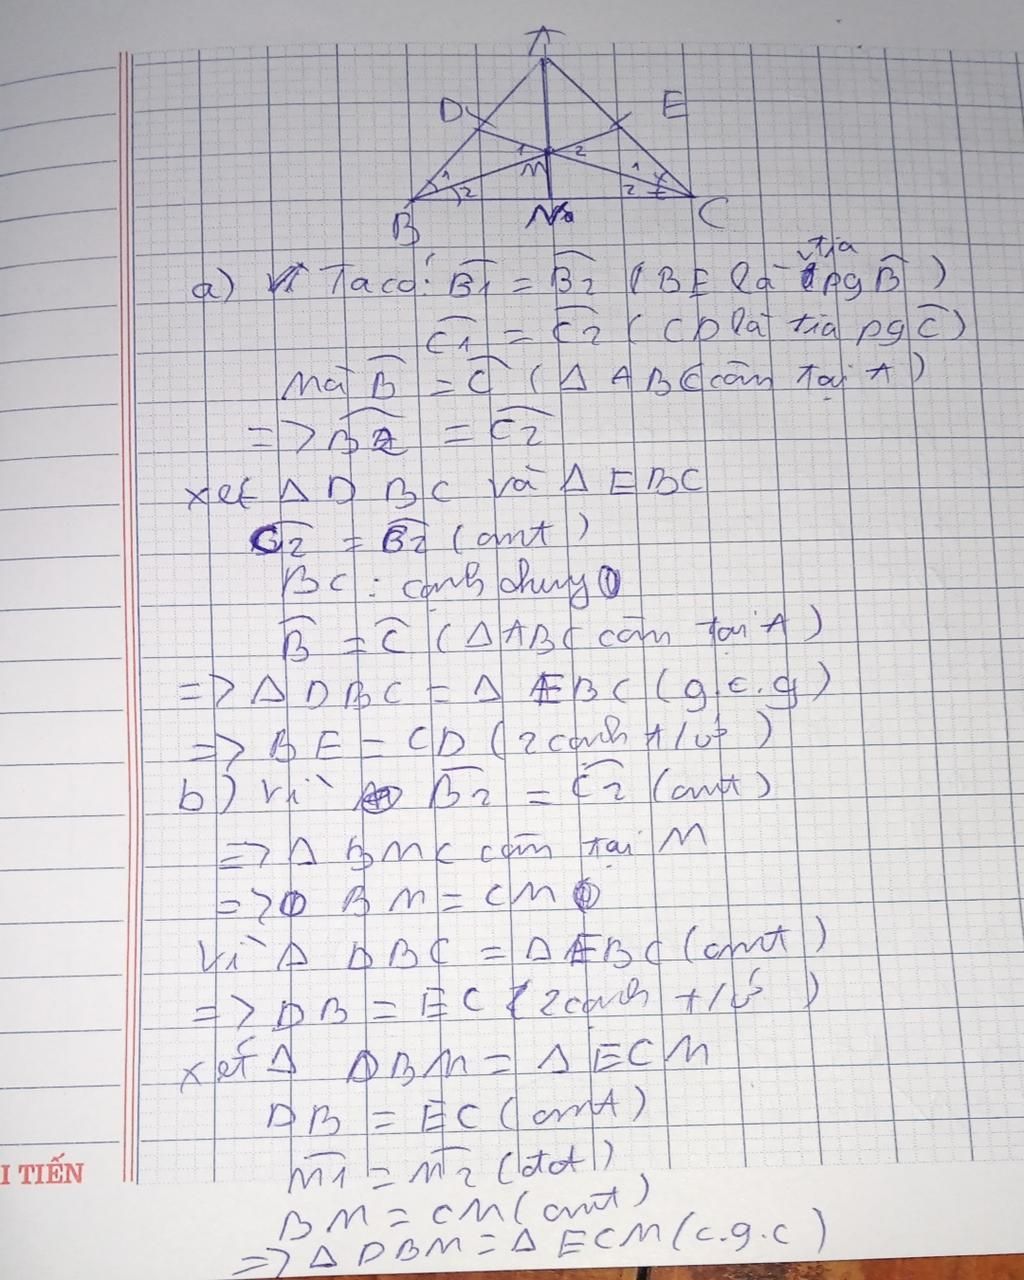 A
D E
1 2
M
1 2 1 2
B N C
a) Ta có: B̂1 = B̂2 (BE là tia pg B̂)
Ĉ1 = Ĉ2 (CD là tia pg Ĉ)
Mà B̂ = Ĉ (Δ ABC cân tại A)
=> B̂2 = Ĉ2
xét Δ DBC và Δ EBC
Ĉ2 = B̂2 (cmt)
BC: cạnh chung
B̂ = Ĉ (Δ ABC cân tại A)
=> Δ DBC = Δ EBC (g.c.g)
=> BE = CD (2 cạnh t/ứ)
b) Vì B̂2 = Ĉ2 (cmt)
=> Δ BMC cân tại M
=> BM = CM
Vì Δ DBC = Δ EBC (cmt)
=> DB = EC (2 cạnh t/ứ)
xét Δ DBM = Δ ECM
DB = EC (cmt)
M̂1 = M̂2 (đđ)
BM = CM (cmt)
=> Δ DBM = Δ ECM (c.g.c)
I TIẾN